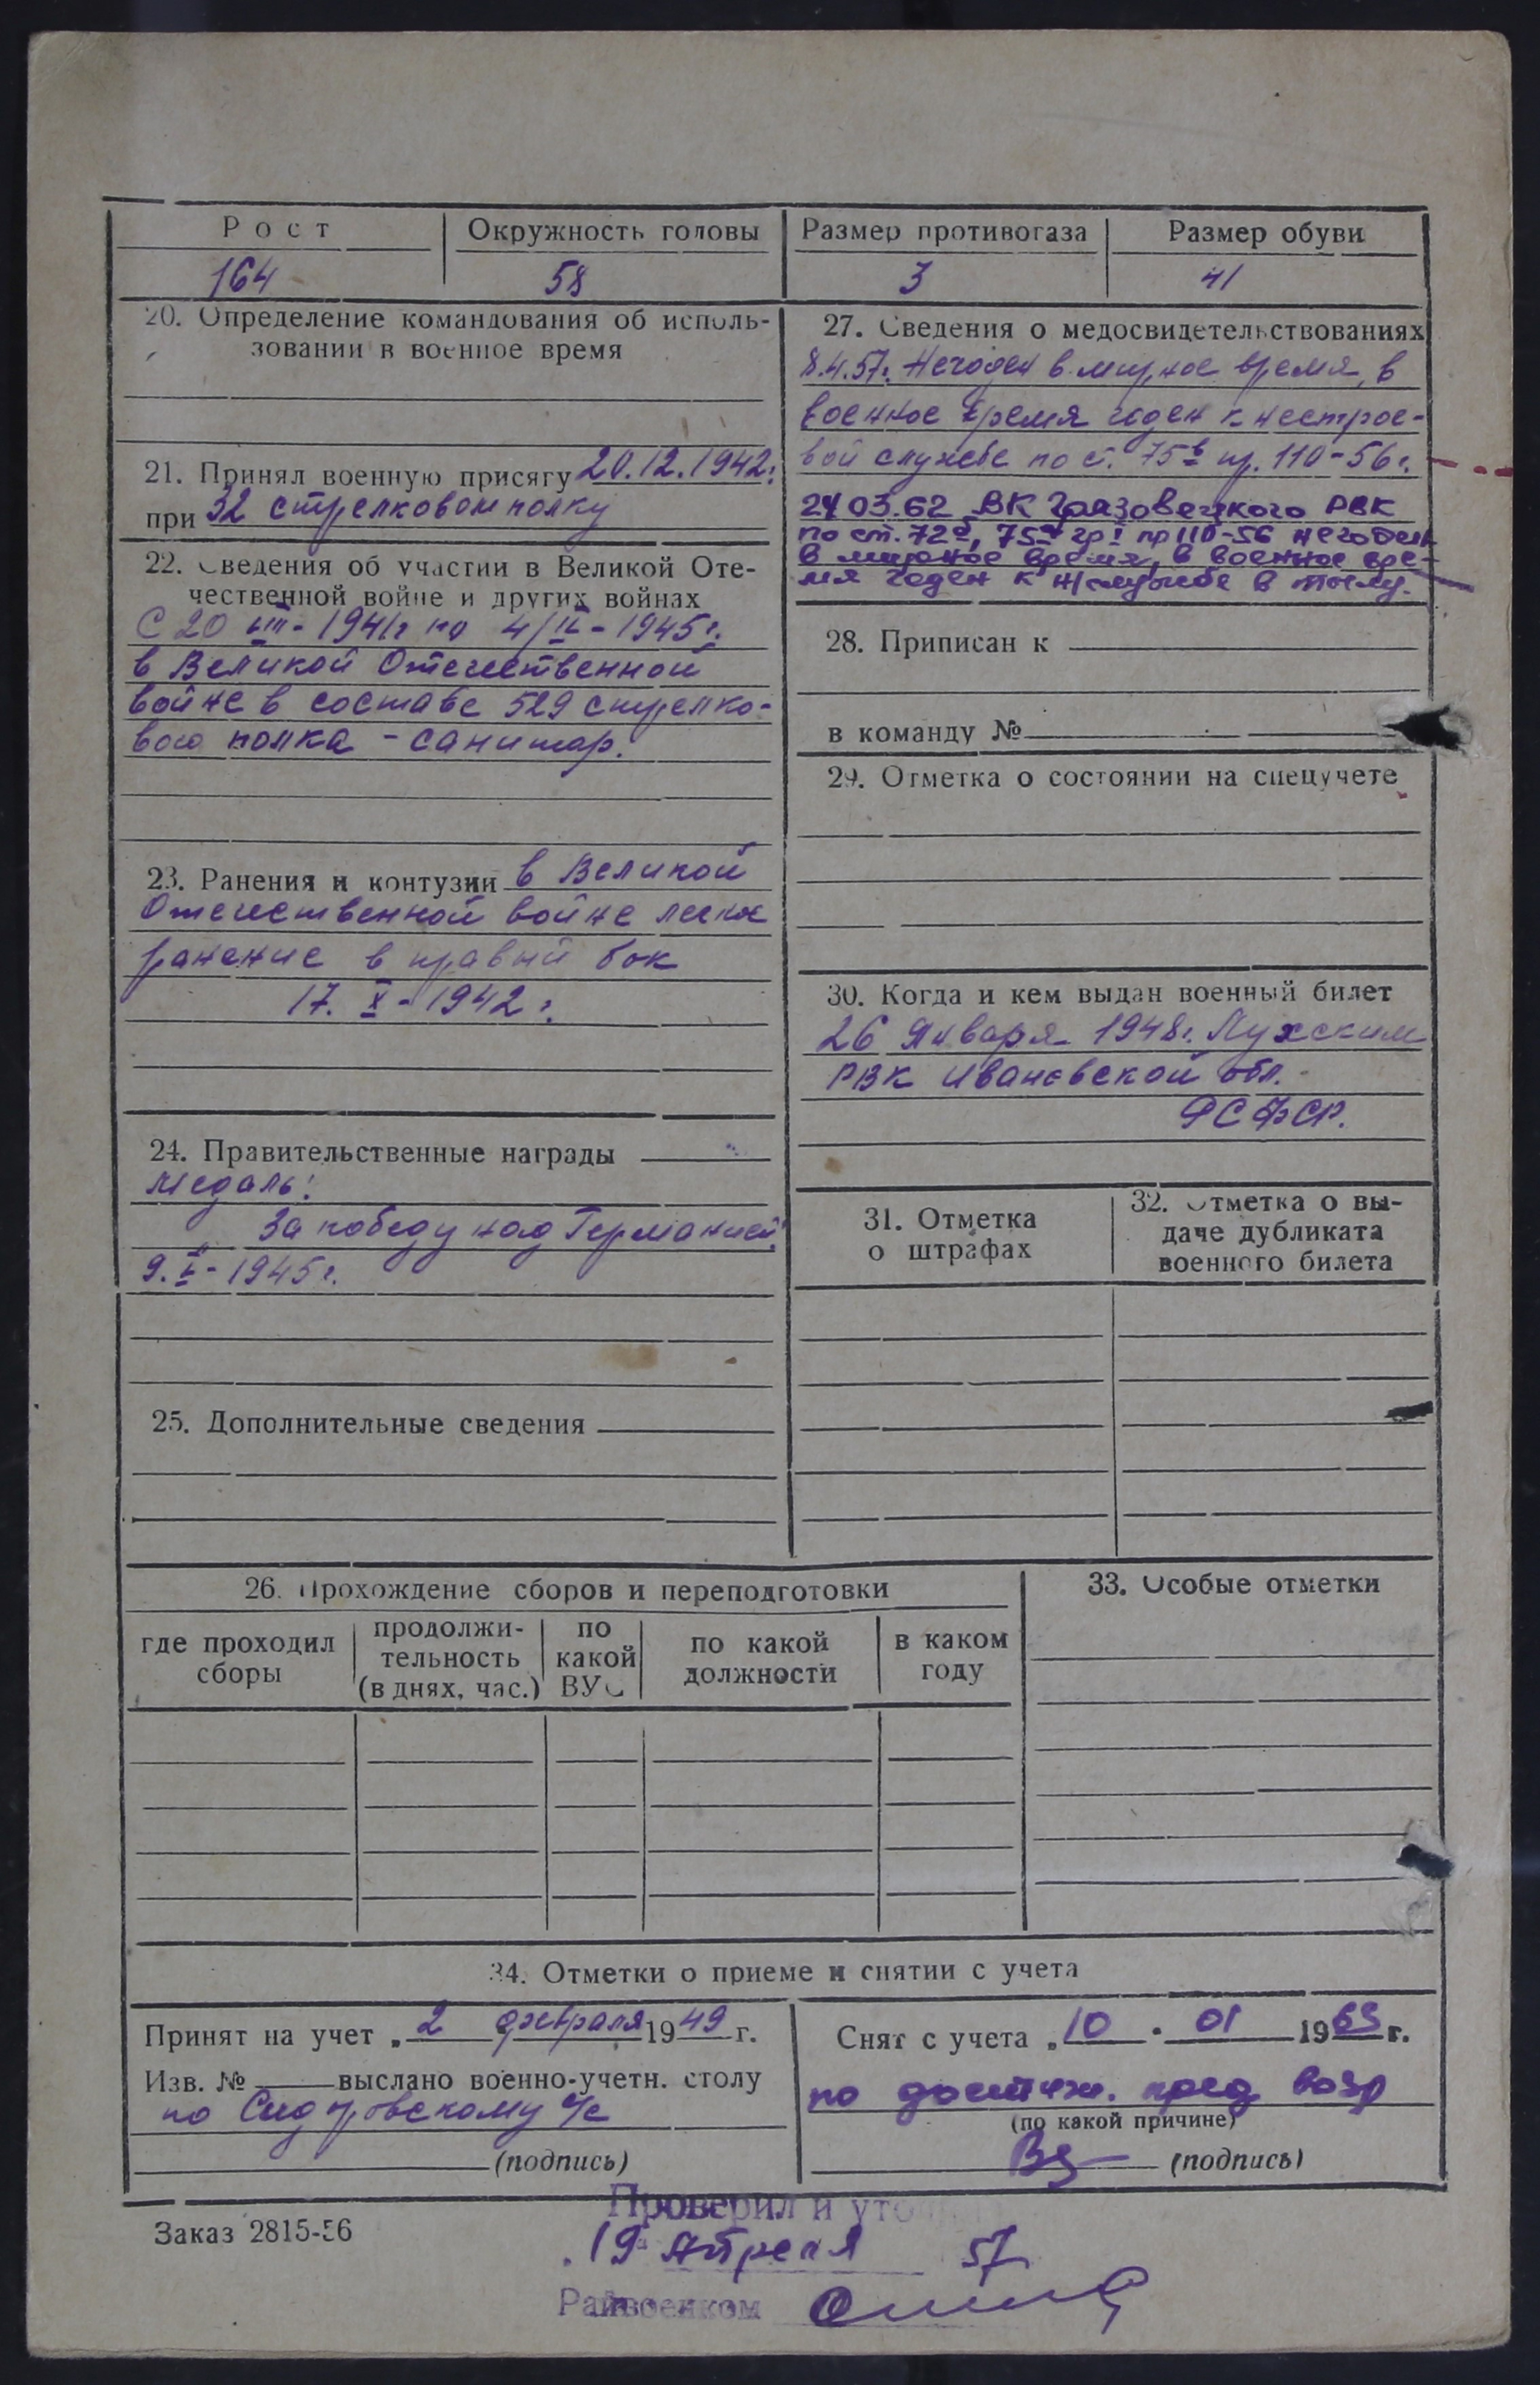 Рост
Окружность головы
Размер противогаза
Размер обуви
164
58
3
41
20. Определение командования об исполь-
зовании в военное время
21. Принял военную присягу 20.12.1942г.
при 32 стрелковом полку
22. Сведения об участии в Великой Оте-
чественной войне и других войнах
С 20 VIII-1941г по 4/IX-1945г.
в Великой Отечественной
войне в составе 529 стрелко-
вого полка - санитар.
23. Ранения и контузии в Великой
Отечественной войне легкое
ранение в правый бок
17. X-1942г.
24. Правительственные награды
Медаль:
За победу над Германией"
9.V-1945г.
25. Дополнительные сведения
27. Сведения о медосвидетельствованиях
8.4.57г. Негоден в мирное время, в
военное время годен к нестрое-
вой службе по ст. 75в пр. 110-56г.
24 03.62 ВК Грязовецкого РВК
по ст. 72б, 75 гр I пр 110-56 негоден
в мирное время, в военное вре-
мя годен к н/службе в тылу.
28. Приписан к
в команду №
29. Отметка о состоянии на спецучете
30. Когда и кем выдан военный билет
26 Января 1948г. Лухским
РВК Ивановской обл.
РСФСР.
31. Отметка
о штрафах
32. Отметка о вы-
даче дубликата
военного билета
26. Прохождение сборов и переподготовки
где проходил
сборы
продолжи-
тельность
(в днях, час.)
по
какой
ВУС
по какой
должности
в каком
году
33. Особые отметки
34. Отметки о приеме и снятии с учета
Принят на учет „ 2 февраля 1949 г.
Изв. № выслано военно-учетн. столу
по Сидоровскому с/с
(подпись)
Снят с учета „ 10 . 01 1963 г.
по достиж. пред возр
(по какой причине)
(подпись)
Заказ 2815-56
Проверил и уто
19 Апреля 57
Райвоенком